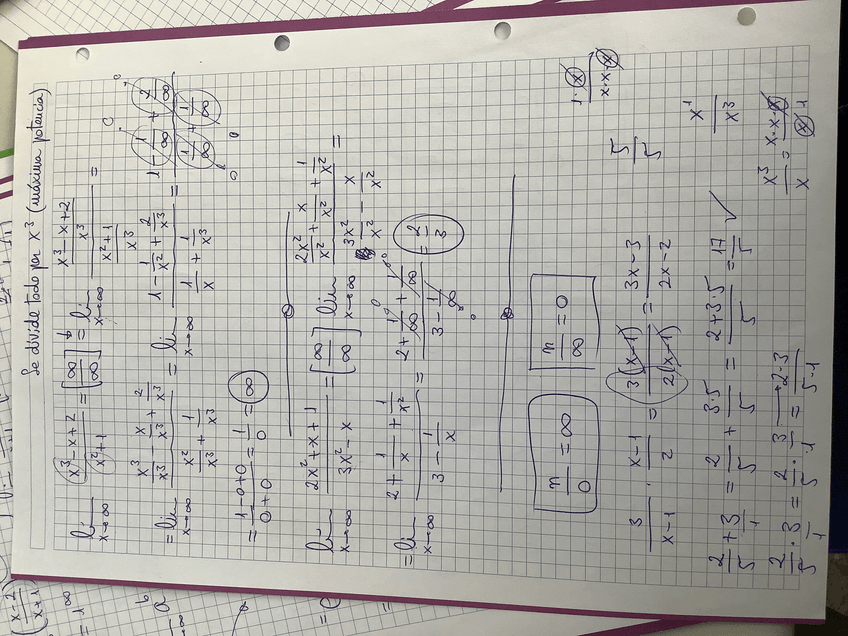 Se divide todo por x³ (máxima potencia)
lim x→∞ (x³ - x + 2)/(x² + 1) = [∞/∞] = lim x→∞ ((x³ - x + 2)/x³)/((x² + 1)/x³) =
= lim x→∞ (x³/x³ - x/x³ + 2/x³)/(x²/x³ + 1/x³) = lim x→∞ (1 - 1/x² + 2/x³)/(1/x + 1/x³) = (1 - 1/∞ + 2/∞)/(1/∞ + 1/∞)
= (1-0+0)/(0+0) = 1/0 = ∞
lim x→∞ (2x² + x + 1)/(3x² - x) = [∞/∞] lim x→∞ (2x²/x² + x/x² + 1/x²)/(3x²/x² - x/x²) =
= lim x→∞ (2 + 1/x + 1/x²)/(3 - 1/x) = (2 + 1/∞ + 1/∞)/(3 - 1/∞) = 2/3
n/0 = ∞ n/∞ = 0
3/(x-1) · (x-1)/2 = 3(x-1)/2(x-1) = (3x-3)/(2x-2) 5/5 1·x/x·x·x
2/5 + 3/1 = 2/5 + 3·5/5 = (2+3·5)/5 = 17/5 ✓ x¹/x³
2/5 · 3 = 2/5 · 3/1 = 2·3/5·1 x³/x = x·x·x/x 1